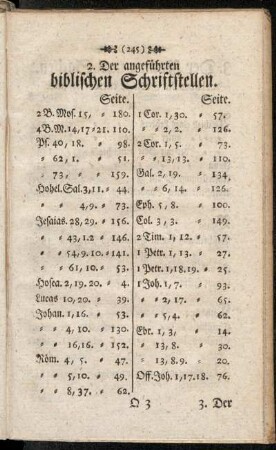 (245)
2. Der angeführten
biblischen Schriftstellen.
Seite.
2 B. Mos. 15, - 180.
4 B. M. 14, 17-21. 110.
Ps. 40, 18. - 98.
- 62, 1. - 51.
- 73, - - 159.
Hohel. Sal. 3, 11. - 44.
- - 4, 9. - 73.
Jesaias. 28, 29. - 156.
- - 43, 1. 2 - 146.
- - 54, 9. 10. - 141.
- - 61, 10. - 53.
Hosea. 2, 19. 20. - 4.
Lucas 10, 20. - 39.
Johan. 1, 16. - 53.
- - 4, 10. - 130.
- - 16, 16. - 152.
Röm. 4, 5. - 47.
- - 5, 10. - 49.
- - 8, 37. - 62.
Seite.
1 Cor. 1, 30. - 57.
- - 2, 2. - 126.
2 Cor. 1, 5. - 73.
- - 13, 13. - 110.
Gal. 2, 19. - 134.
- - 6, 14. - 126.
Eph. 5, 8. - 100.
Col. 3, 3. - 149.
2 Tim. 1, 12. - 57.
1 Petr. 1, 13. - 27.
1 Petr. 1, 18. 19. - 25.
1 Joh. 1, 7. - 93.
- - 2, 17. - 65.
- - 5, 4. - 62.
Ebr. 1, 3, - 14.
- - 13, 8. - 30.
- - 13, 8. 9. - 20.
Off. Joh. 1, 17. 18. - 76.
Q 3 3. Der